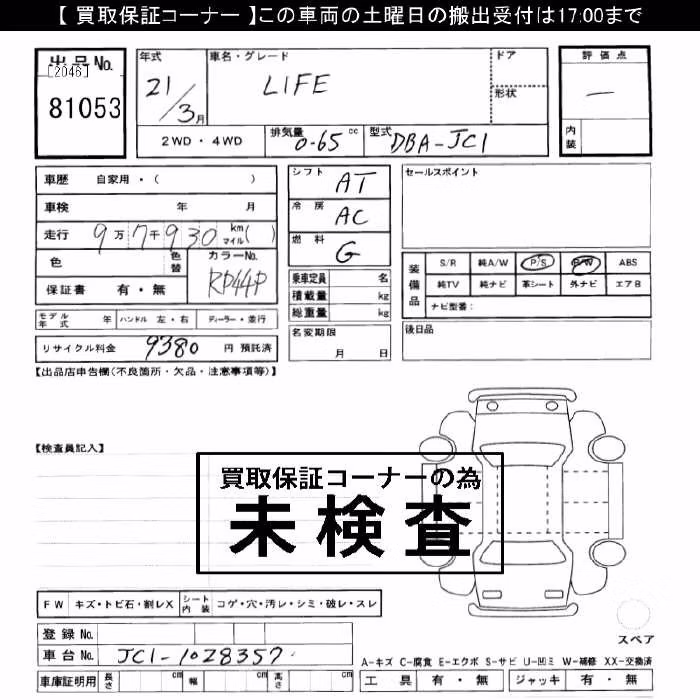 【 買取保証コーナー 】この車両の土曜日の搬出受付は17:00まで
出品No. [2046] 81053
年式 21/3月
車名・グレード LIFE
ドア
形状
評価点 —
内装
2WD・4WD
排気量 0.65 cc
型式 DBA-JC1
車歴 自家用・( )
車検 年 月
走行 9万7千930 km マイル( )
色 色替
カラーNo. RP44P
保証書 有・無
モデル年式 年 ハンドル 左・右 ディーラー・並行
リサイクル料金 9380 円 預託済
シフト AT
冷房 AC
燃料 G
乗車定員 名
積載量 kg
総重量 kg
名変期限 月 日
セールスポイント
装備品 S/R 純A/W P/S P/W ABS
純TV 純ナビ 革シート 外ナビ エアB
ナビ型番：
後日品
【出品店申告欄(不良箇所・欠品・注意事項等)】
【検査員記入】
買取保証コーナーの為
未検査
FW キズ・トビ石・割レX シート内装 コゲ・穴・汚レ・シミ・破レ・スレ
登録No.
車台No. JC1-1028357
車庫証明用 長さ cm 幅 cm 高さ cm
スペア
A-キズ C-腐食 E-エクボ S-サビ U-凹ミ W-補修 XX-交換済
工具 有・無 ジャッキ 有・無